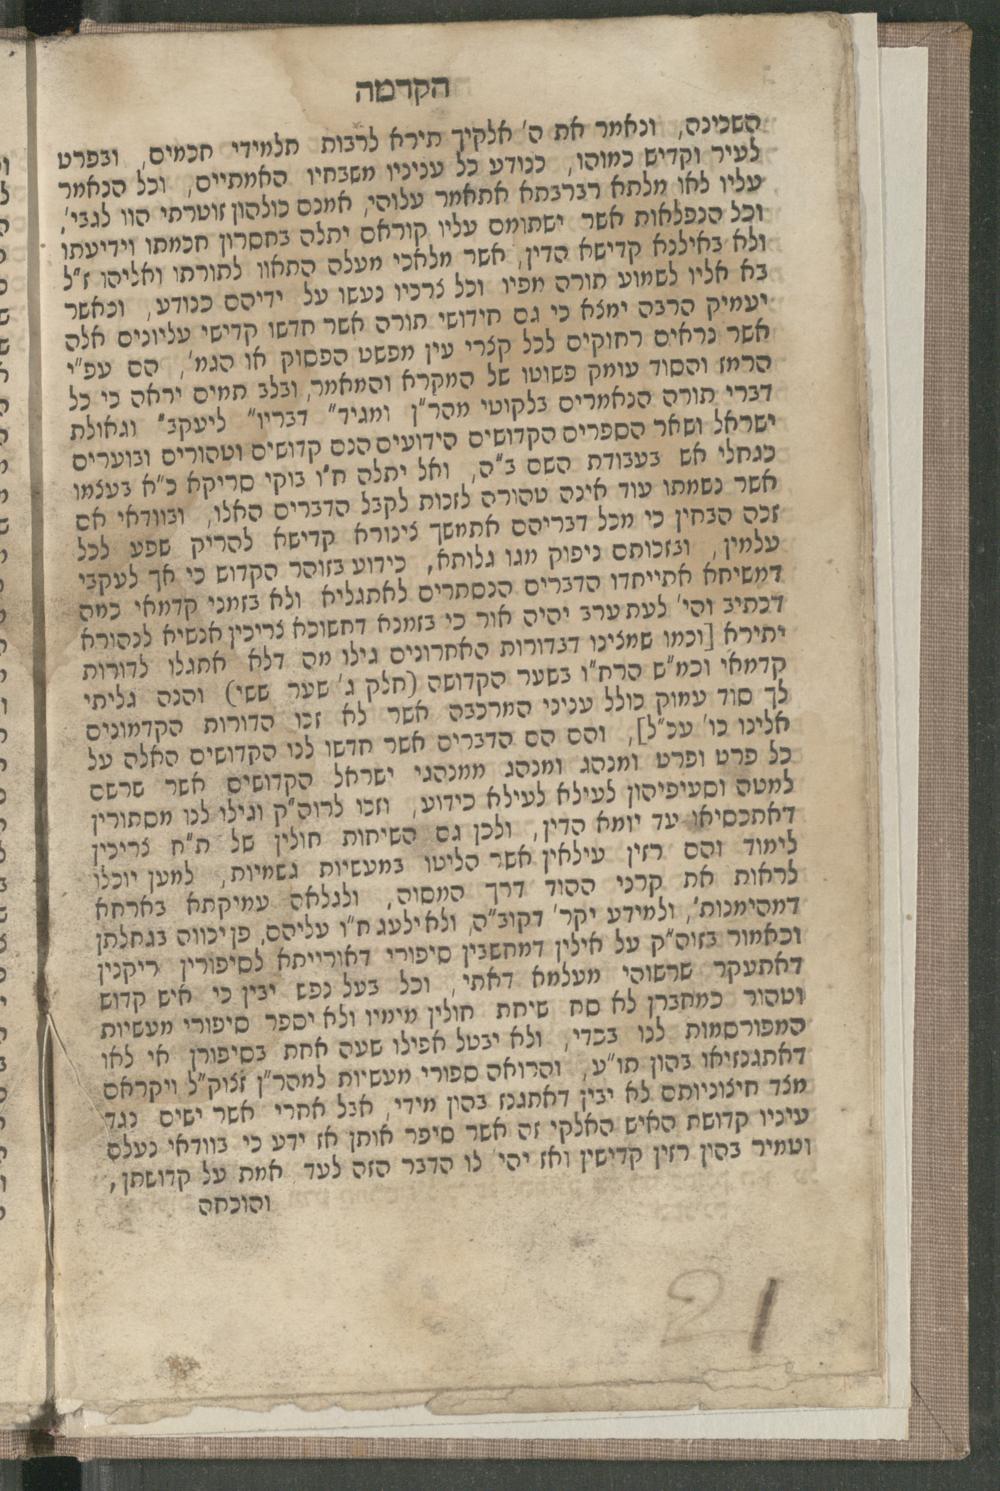 הקדמה
השכינה, ונאמר את ה' אלקיך תירא לרבות תלמידי חכמים, ובפרט
לעיר וקדיש כמוהו, כנודע כל עניניו משבחיו האמתיים, וכל הנאמר
עליו לאו מלתא רברבתא אתאמר עלוהי, אמנם כולהון זוטרתי הוו לגבי',
וכל הנפלאות אשר ישתומם עליו קוראם יתלה בחסרון חכמתו וידיעתו
ולא באילנא קדישא הדין, אשר מלאכי מעלה התאוו לתורתו ואליהו ז"ל
בא אליו לשמוע תורה מפיו וכל צרכיו נעשו על ידיהם כנודע, וכאשר
יעמיק הרבה ימצא כי גם חידושי תורה אשר חדשו קדישי עליונים אלה
אשר נראים רחוקים לכל קצרי עין מפשט הפסוק או הגמ', הם עפ"י
הרמז והסוד עומק פשוטו של המקרא והמאמר, ובלב תמים יראה כי כל
דברי תורה הנאמרים בלקוטי מהר"ן ומגיד" דבריו" ליעקב" וגאולת
ישראל ושאר הספרים הקדושים הידועים הנם קדושים וטהורים ובוערים
כגחלי אש בעבודת השם ב"ה, ואל יתלה ח"ו בוקי סריקא כ"א בעצמו
אשר נשמתו עוד אינה טהורה לזכות לקבל הדברים האלו, ובוודאי אם
זכה הבחין כי מכל דבריהם אתמשך צינורא קדישא להריק שפע לכל
עלמין, ובזכותם ניפוק מגו גלותא, כידוע בזוהר הקדוש כי אך לעקבי
דמשיחא אתייחדו הדברים הנסתרים לאתגליא ולא בזמני קדמאי כמה
דכתיב והי' לעת ערב יהיה אור כי בזמנא דחשוכא צריכין אנשיא לנהורא
יתירא [וכמו שמצינו דבדורות האחרונים גילו מה דלא אתגלו לדורות
קדמאי וכמ"ש הרח"ו בשער הקדושה (חלק ג' שער ששי) והנה גליתי
לך סוד עמוק כולל עניני המרכבה אשר לא זכו הדורות הקדמונים
אלינו כו' עכ"ל], והם הם הדברים אשר חדשו לנו הקדושים האלה על
כל פרט ופרט ומנהג ומנהג ממנהגי ישראל הקדושים אשר שרשם
למטה וסעיפיהון לעילא לעילא כידוע, וזכו לרוה"ק וגילו לנו מסתורין
דאתכסיאו עד יומא הדין, ולכן גם השיחות חולין של ת"ח צריכין
לימוד והם רזין עילאין אשר הליטו במעשיות גשמיות, למען יוכלו
לראות את קרני ההוד דרך המסוה, ולגלאה עמיקתא בארחא
דמהימנות', ולמידע יקר' דקוב"ה, ולא ילעג ח"ו עליהם, פן יכווה בגחלתן
וכאמור בזוה"ק על אילין דמחשבין סיפורי דאורייתא לסיפורין ריקנין
דאתעקר שרשוהי מעלמא דאתי, וכל בעל נפש יבין כי איש קדוש
וטהור כמחברן לא סח שיחת חולין מימיו ולא יספר סיפורי מעשיות
המפורסמות לנו בכדי, ולא יבטל אפילו שעה אחת בסיפורן אי לאו
דאתגנזיאו בהון תו"ע, והרואה ספורי מעשיות למהר"ן זצוק"ל ויקראם
מצד חיצוניותם לא יבין דאתגנז בהון מידי, אבל אחרי אשר ישים נגד
עיניו קדושת האיש האלקי זה אשר סיפר אותן אז ידע כי בוודאי נעלם
וטמיר בהין רזין קדישין ואז יהי' לו הדבר הזה לעד אמת על קדושתן,
והוכחה
21